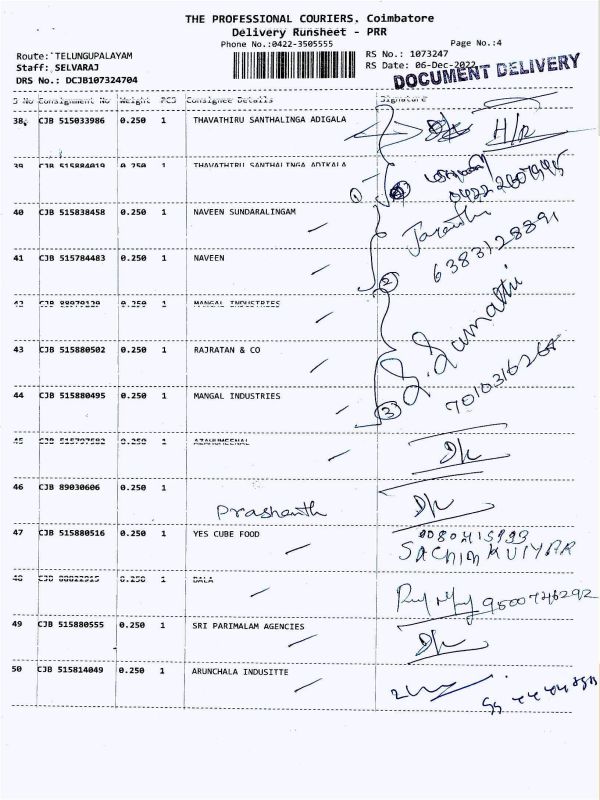 THE PROFESSIONAL COURIERS. Coimbatore
Delivery Runsheet - PRR
Phone No.:0422-3505555
Page No.:4
Route: TELUNGUPALAYAM
RS No.: 1073247
Staff: SELVARAJ
RS Date: 06-Dec-2022
DRS No.: DCJB107324704
DOCUMENT DELIVERY
S No Consignment No Weight PCS Consignee Details Signature
38 CJB 515033986 0.250 1 THAVATHIRU SANTHALINGA ADIGALA
D/K H/R
39 CJB 515884019 0.250 1 THAVATHIRU SANTHALINGA ADIKALA
1
40 CJB 515838458 0.250 1 NAVEEN SUNDARALINGAM
Jayanthi
41 CJB 515784483 0.250 1 NAVEEN
6383128891
2
42 CJB 88970129 0.250 1 MANGAL INDUSTRIES
43 CJB 515880502 0.250 1 RAJRATAN & CO
S. Sumathi
44 CJB 515880495 0.250 1 MANGAL INDUSTRIES
3
7010316264
45 CJB 515797582 0.250 1 AZAHUMEENAL
D/K
46 CJB 89030606 0.250 1
Prashanth
D/K
47 CJB 515880516 0.250 1 YES CUBE FOOD
SACHIN KUIYAR
48 CJB 88822315 0.250 1 BALA
9500746292
49 CJB 515880555 0.250 1 SRI PARIMALAM AGENCIES
D/K
50 CJB 515814049 0.250 1 ARUNCHALA INDUSITTE